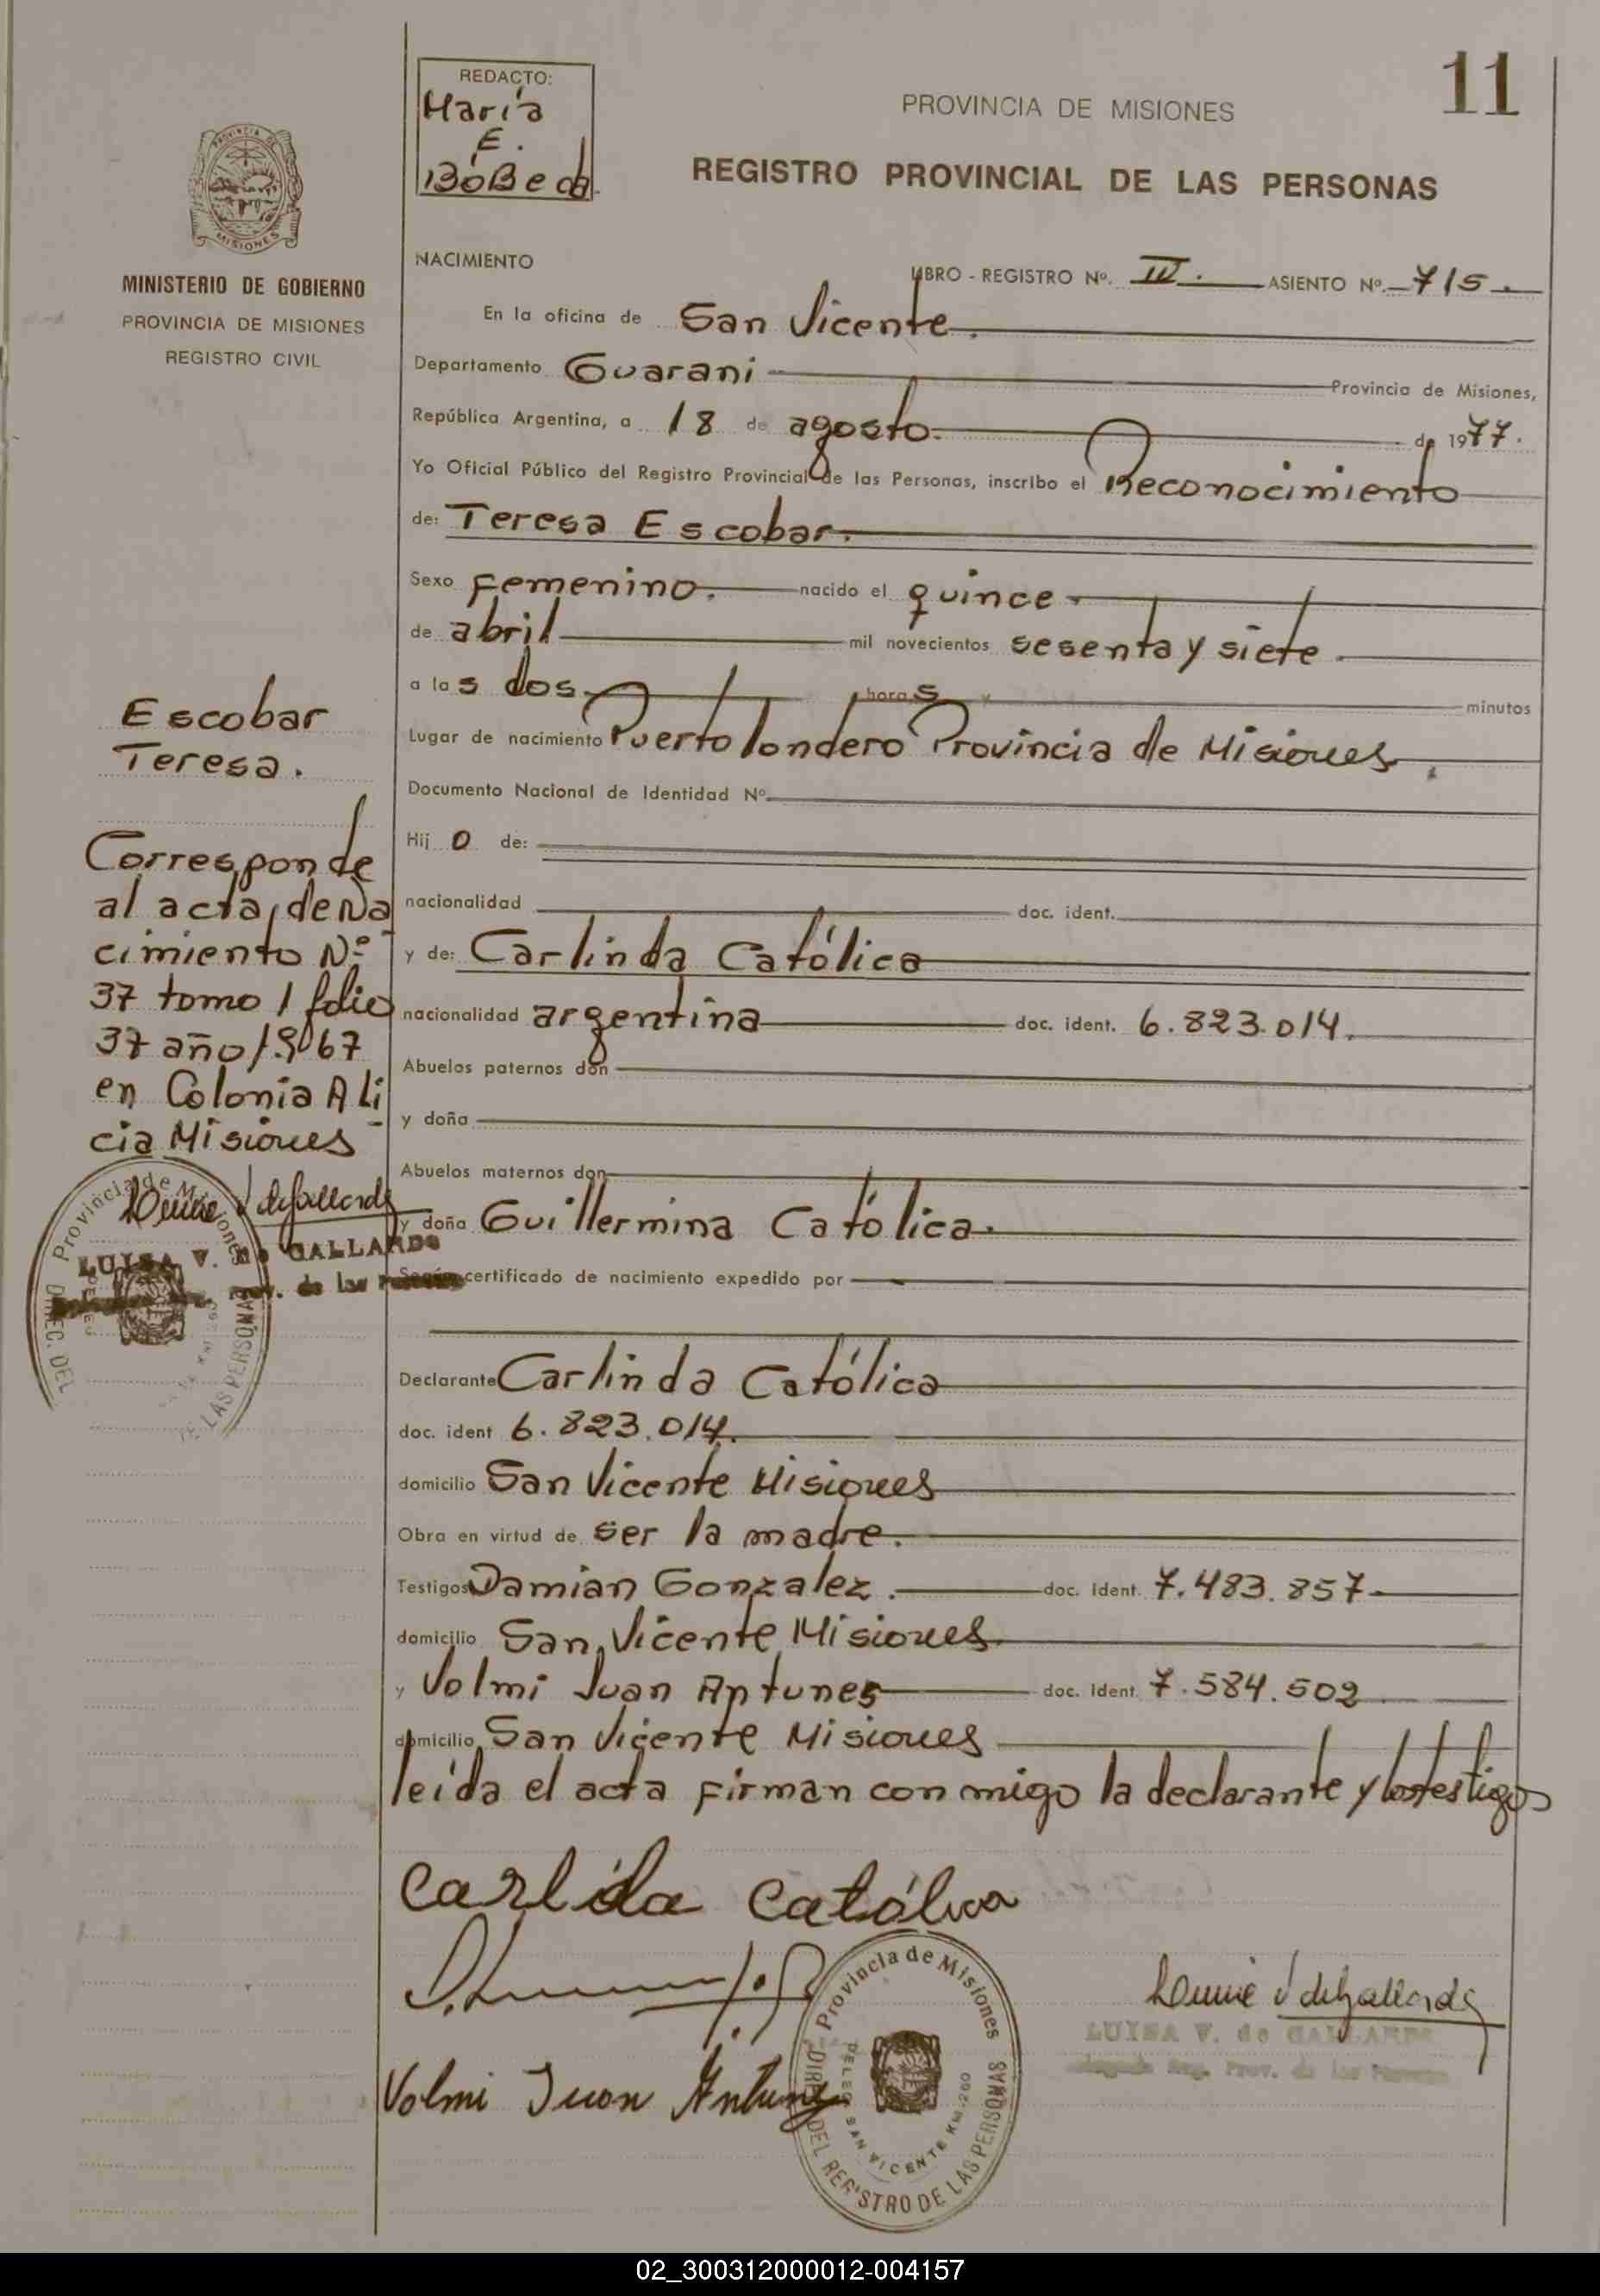 11
REDACTO:
María
E.
BóBeda.
PROVINCIA DE MISIONES
REGISTRO PROVINCIAL DE LAS PERSONAS
PROVINCIA DE
MISIONES
MINISTERIO DE GOBIERNO
PROVINCIA DE MISIONES
REGISTRO CIVIL
NACIMIENTO
LIBRO - REGISTRO Nº. IV. ASIENTO Nº. 715.
En la oficina de San Vicente.
Departamento Guarani Provincia de Misiones,
República Argentina, a 18 de agosto. de 1977.
Yo Oficial Público del Registro Provincial de las Personas, inscribo el Reconocimiento
de: Teresa Escobar.
Sexo femenino. nacido el quince
de abril mil novecientos sesenta y siete
a las dos horas minutos
Lugar de nacimiento Puerto londero Provincia de Misiones
Documento Nacional de Identidad Nº
Hij o de:
nacionalidad doc. ident.
y de: Carlinda Católica
nacionalidad argentina doc. ident. 6.823.014.
Abuelos paternos don
y doña
Abuelos maternos don
y doña Guillermina Católica.
Según certificado de nacimiento expedido por
Declarante Carlinda Católica
doc. ident 6.823.014.
domicilio San Vicente Misiones
Obra en virtud de ser la madre.
Testigos Damian Gonzalez. doc. Ident. 7.483.857
domicilio San Vicente Misiones
y Volmi Juan Antunes doc. Ident. 7.584.502
domicilio San Vicente Misiones
leída el acta firman con migo la declarante y los testigos
Escobar
Teresa.
Corresponde
al acta de Na
cimiento Nº
37 tomo 1 folio
37 año 1967
en Colonia Ali
cia Misiones
Provincia de Misiones
LUISA V. de GALLARDO
Prov. de las
DIREC. DEL
DE LAS PERSONAS
Carlida Católica
Volmi Juon Antunes
Provincia de Misiones
DELEG. SAN VICENTE KM. 260
DIREC. DEL REGISTRO DE LAS PERSONAS
LUISA V. de GALLARDO
Reg. Prov. de las Personas
02_300312000012-004157